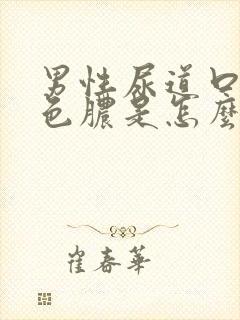 男性尿道口
色膿是怎麼
崔春華